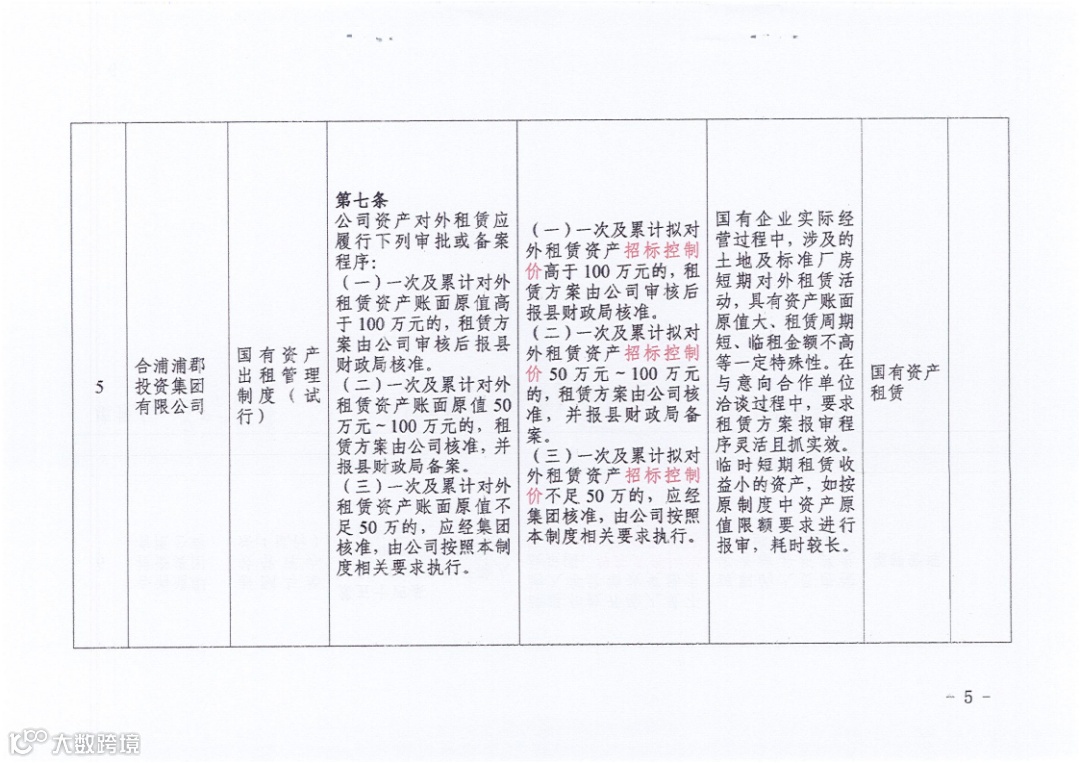 5
合浦浦郡
投资集团
有限公司
国有资产
出租管理
制度（试
行）
第七条
公司资产对外租赁应
履行下列审批或备案
程序：
（一）一次及累计对外
租赁资产账面原值高
于 100 万元的，租赁方
案由公司审核后报县
财政局核准。
（二）一次及累计对外
租赁资产账面原值 50
万元～100 万元的，租
赁方案由公司核准，并
报县财政局备案。
（三）一次及累计对外
租赁资产账面原值不
足 50 万的，应经集团
核准，由公司按照本制
度相关要求执行。
（一）一次及累计拟对
外租赁资产招标控制
价高于 100 万元的，租
赁方案由公司审核后
报县财政局核准。
（二）一次及累计拟对
外租赁资产招标控制
价 50 万元～100 万元
的，租赁方案由公司核
准，并报县财政局备
案。
（三）一次及累计拟对
外租赁资产招标控制
价不足 50 万的，应经
集团核准，由公司按照
本制度相关要求执行。
国有企业实际经
营过程中，涉及的
土地及标准厂房
短期对外租赁活
动，具有资产账面
原值大、租赁周期
短、临租金额不高
等一定特殊性。在
与意向合作单位
洽谈过程中，要求
租赁方案报审程
序灵活且抓实效。
临时短期租赁收
益小的资产，如按
原制度中资产原
值限额要求进行
报审，耗时较长。
国有资产
租赁
- 5 -
大数跨境